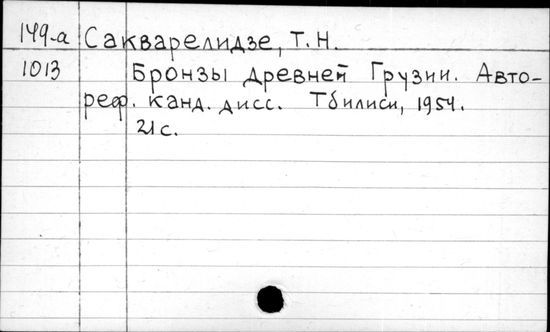 149-а Сакварелидзе, Т.Н.
1013 Бронзы древней Грузии. Авто-
реф. канд. дисс. Тбилиси, 1954.
21 с.